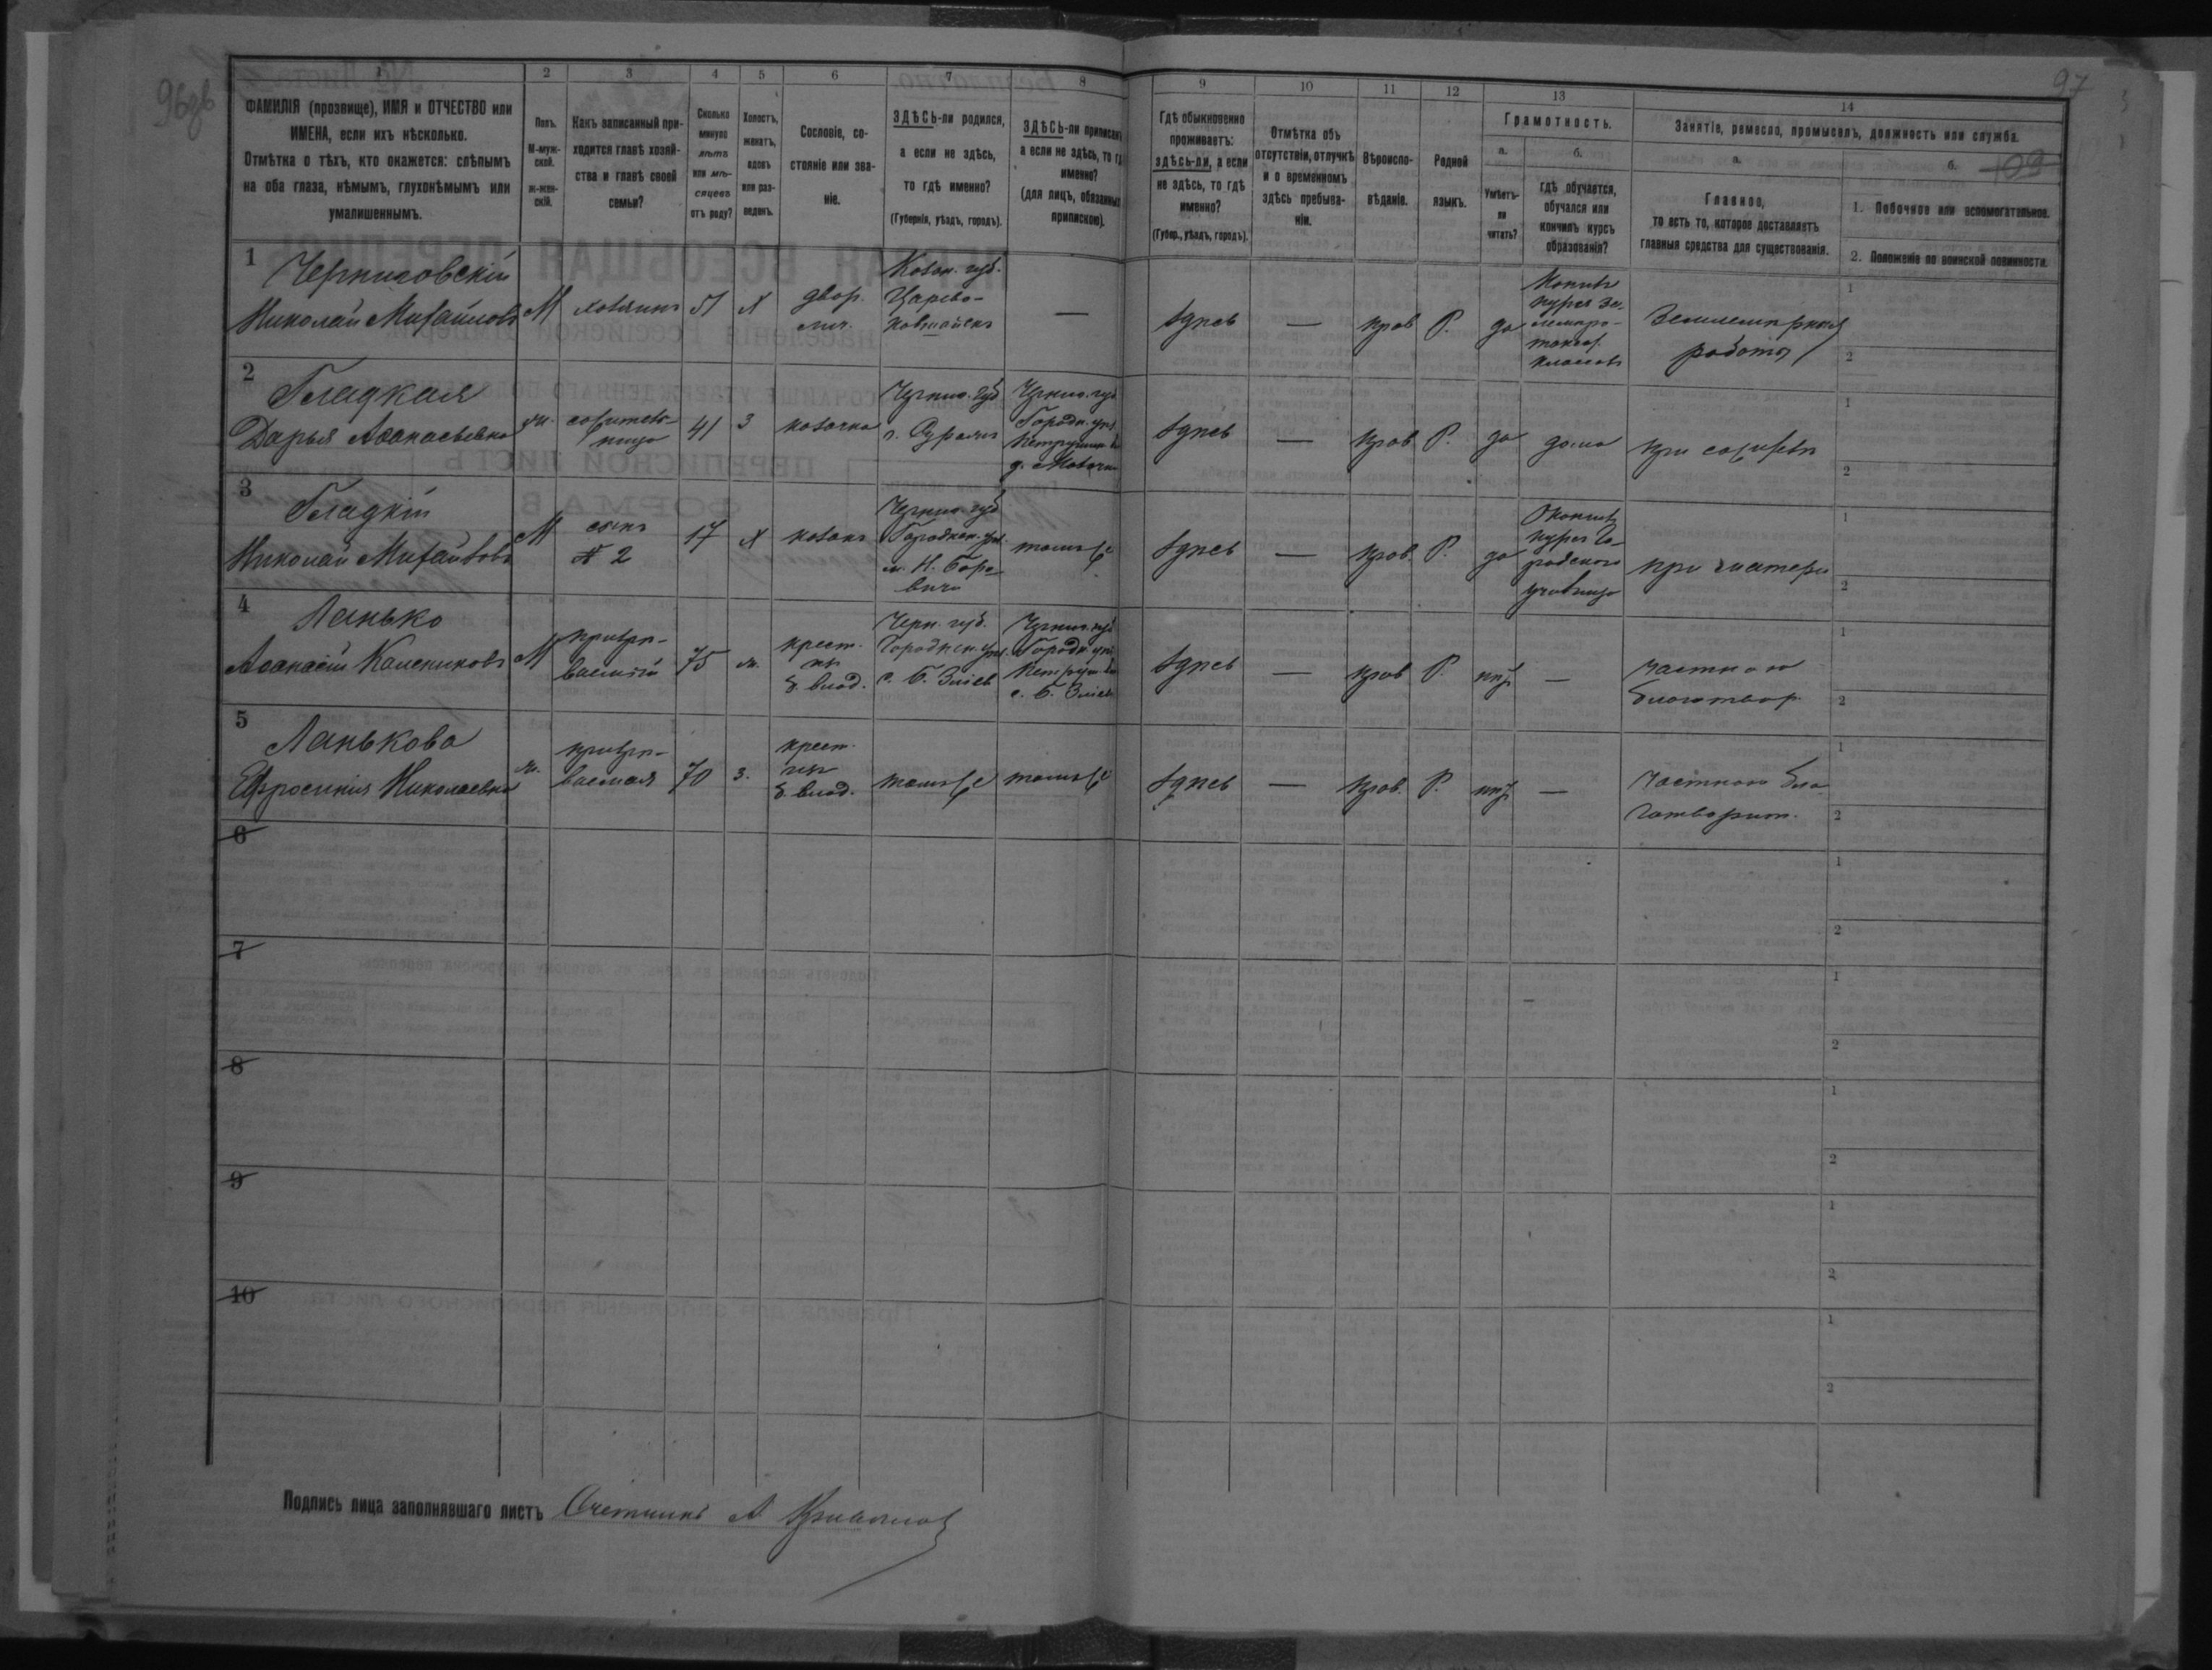 96об
97
109
1
2
3
4
5
6
7
8
9
10
11
12
13
14
ФАМИЛІЯ (прозвище), ИМЯ и ОТЧЕСТВО или
ИМЕНА, если ихъ нѣсколько.
Отмѣтка о тѣхъ, кто окажется: слѣпымъ
на оба глаза, нѣмымъ, глухонѣмымъ или
умалишеннымъ.
Полъ.
М-муж-
ской.
ж-жен-
скій.
Какъ записанный при-
ходится главѣ хозяй-
ства и главѣ своей
семьи?
Сколько
минуло
лѣтъ
или мѣ-
сяцевъ
отъ роду?
Холостъ,
женатъ,
вдовъ
или раз-
веденъ.
Сословіе, со-
стояніе или зва-
ніе.
ЗДѢСЬ-ли родился,
а если не здѣсь,
то гдѣ именно?
(Губернія, уѣздъ, городъ).
ЗДѢСЬ-ли приписанъ
а если не здѣсь, то гдѣ
именно?
(для лицъ, обязанныхъ
припискою).
Гдѣ обыкновенно
проживаетъ:
ЗДѢСЬ-ЛИ, а если
не здѣсь, то гдѣ
именно?
(Губер., уѣздъ, городъ).
Отмѣтка объ
отсутствіи, отлучкѣ
и о временномъ
здѣсь пребыва-
ніи.
Вѣроиспо-
вѣданіе.
Родной
языкъ.
Грамотность.
а.
Умѣетъ-
ли
читать?
б.
гдѣ обучается,
обучался или
кончилъ курсъ
образованія?
Занятіе, ремесло, промыселъ, должность или служба.
а.
Главное,
то есть то, которое доставляетъ
главныя средства для существованія.
б.
1. Побочное или вспомогательное.
2. Положеніе по воинской повинности.
1
Черниговскій
Николай Михайловъ
М
хозяинъ
51
Х
двор.
лич.
Казан. губ.
Царево-
—
здѣсь
—
прав.
Р.
да
Землемѣрныя
работы
1
2
2
Гладкая
Дарья Аѳанасьевна
ж.
сожитель-
ница
41
З
козачка
Черниг. губ.
г. Суражъ
Черниг. губ.
Городн. уѣз.
здѣсь
—
прав.
Р.
да
дома
при сожит.
1
2
3
Гладкій
Николай Михайловъ
М
сынъ
№ 2
17
Х
козакъ
Черниг. губ.
Городнян. уѣз.
тамъ же
здѣсь
—
прав.
Р.
да
Окончилъ
курсъ го-
родского
училища
при матери
1
2
4
Ланько
Аѳанасій
М
призрѣ-
ваемый
75
ж.
крест.
изъ
б. влад.
Черн. губ.
Городнян. уѣз.
с. Б. Зліевъ
Черниг. губ.
Городн. уѣз.
с. Б. Зліевъ
здѣсь
—
прав.
Р.
нѣт
—
частною
благотвор.
1
2
5
Ланькова
Ефросинія Николаевна
ж.
призрѣ-
ваемая
70
з.
крест.
изъ
б. влад.
тамъ же
тамъ же
здѣсь
—
прав.
Р.
нѣт
—
частною бла-
готворит.
1
2
6
1
2
7
1
2
8
1
2
9
1
2
10
1
2
Подпись лица заполнявшаго листъ Счетчикъ А.